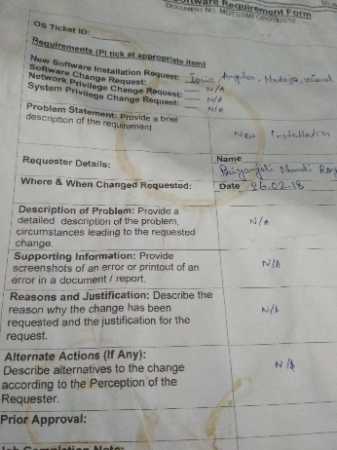 Software Requirement Form
OS Ticket ID:
Requirements (Pl tick at appropriate item)
New Software Installation Request: Ionic, Angular,
Software Change Request: N/A
Network Privilege Change Request: N/A
System Privilege Change Request: N/A
Problem Statement: Provide a brief
description of the requirement
New Installation
Requester Details: Name
Where & When Changed Requested: Date 26.02.18
Description of Problem: Provide a
detailed description of the problem, N/A
circumstances leading to the requested
change.
Supporting Information: Provide
screenshots of an error or printout of an N/A
error in a document / report.
Reasons and Justification: Describe the
reason why the change has been N/A
requested and the justification for the
request.
Alternate Actions (If Any):
Describe alternatives to the change N/A
according to the Perception of the
Requester.
Prior Approval:
Job Completion Note: